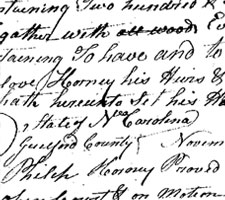 ntaining Two hundred &
ogether with all wood
taining To have and to
love Horney his Heirs &
hath hereunto Set his Ha
State of No Carolina
Guilford County Novem
Philip Horney Proved
open Court & on Motion